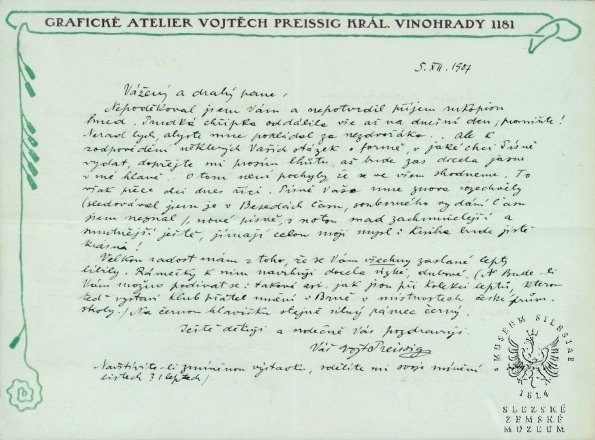 GRAFICKÉ ATELIER VOJTĚCH PREISSIG KRÁL. VINOHRADY 1181
5. XII. 1907
Vážený a drahý pane,
Nepoděkoval jsem Vám a nepotvrdil příjem rukopisu
hned. Prudká chřipka oddálila vše až na dnešní den; promiňte!
Nerad bych, abyste mne pokládal za nezdvořáka. Ale k
zodpovědění některých Vašich otázek o formě, v jaké chci Písně
vydat, dopřejte mi prosím lhůtu, až bude zas docela jasno
v mé hlavě. O tom není pochyby že se ve všem shodneme. To
však přece dnes říci. Písně Vaše mne znova rozechvěly
(sledoval jsem je v Besedách Času, souborného vydání Času
jsem neznal), nové písně, s notou snad zachmuřelejší a
smutnější ještě, jímají celou moji mysl: Kniha bude jistě
krásná!
Velkou radost mám z toho, že se Vám všechny zaslané lepty
líbily. Rámečky k nim navrhuji docela úzké, dubové. (Bude-li
Vám možno podívat se: takové asi, jak jsou při kolekci leptů, kterou
teď vystaví klub přátel umění v Brně v místnostech české prům.
školy.) Na černou hlavičku stejně silný rámec černý.
Ještě děkuji a srdečně Vás pozdravuji
Váš VojtPreissig
Navštívíte-li zmíněnou výstavku, sdělíte mi svoje mínění o
listech? (leptech)
MUSEUM SILESIAE
1814
SLEZSKÉ
ZEMSKÉ
MUZEUM